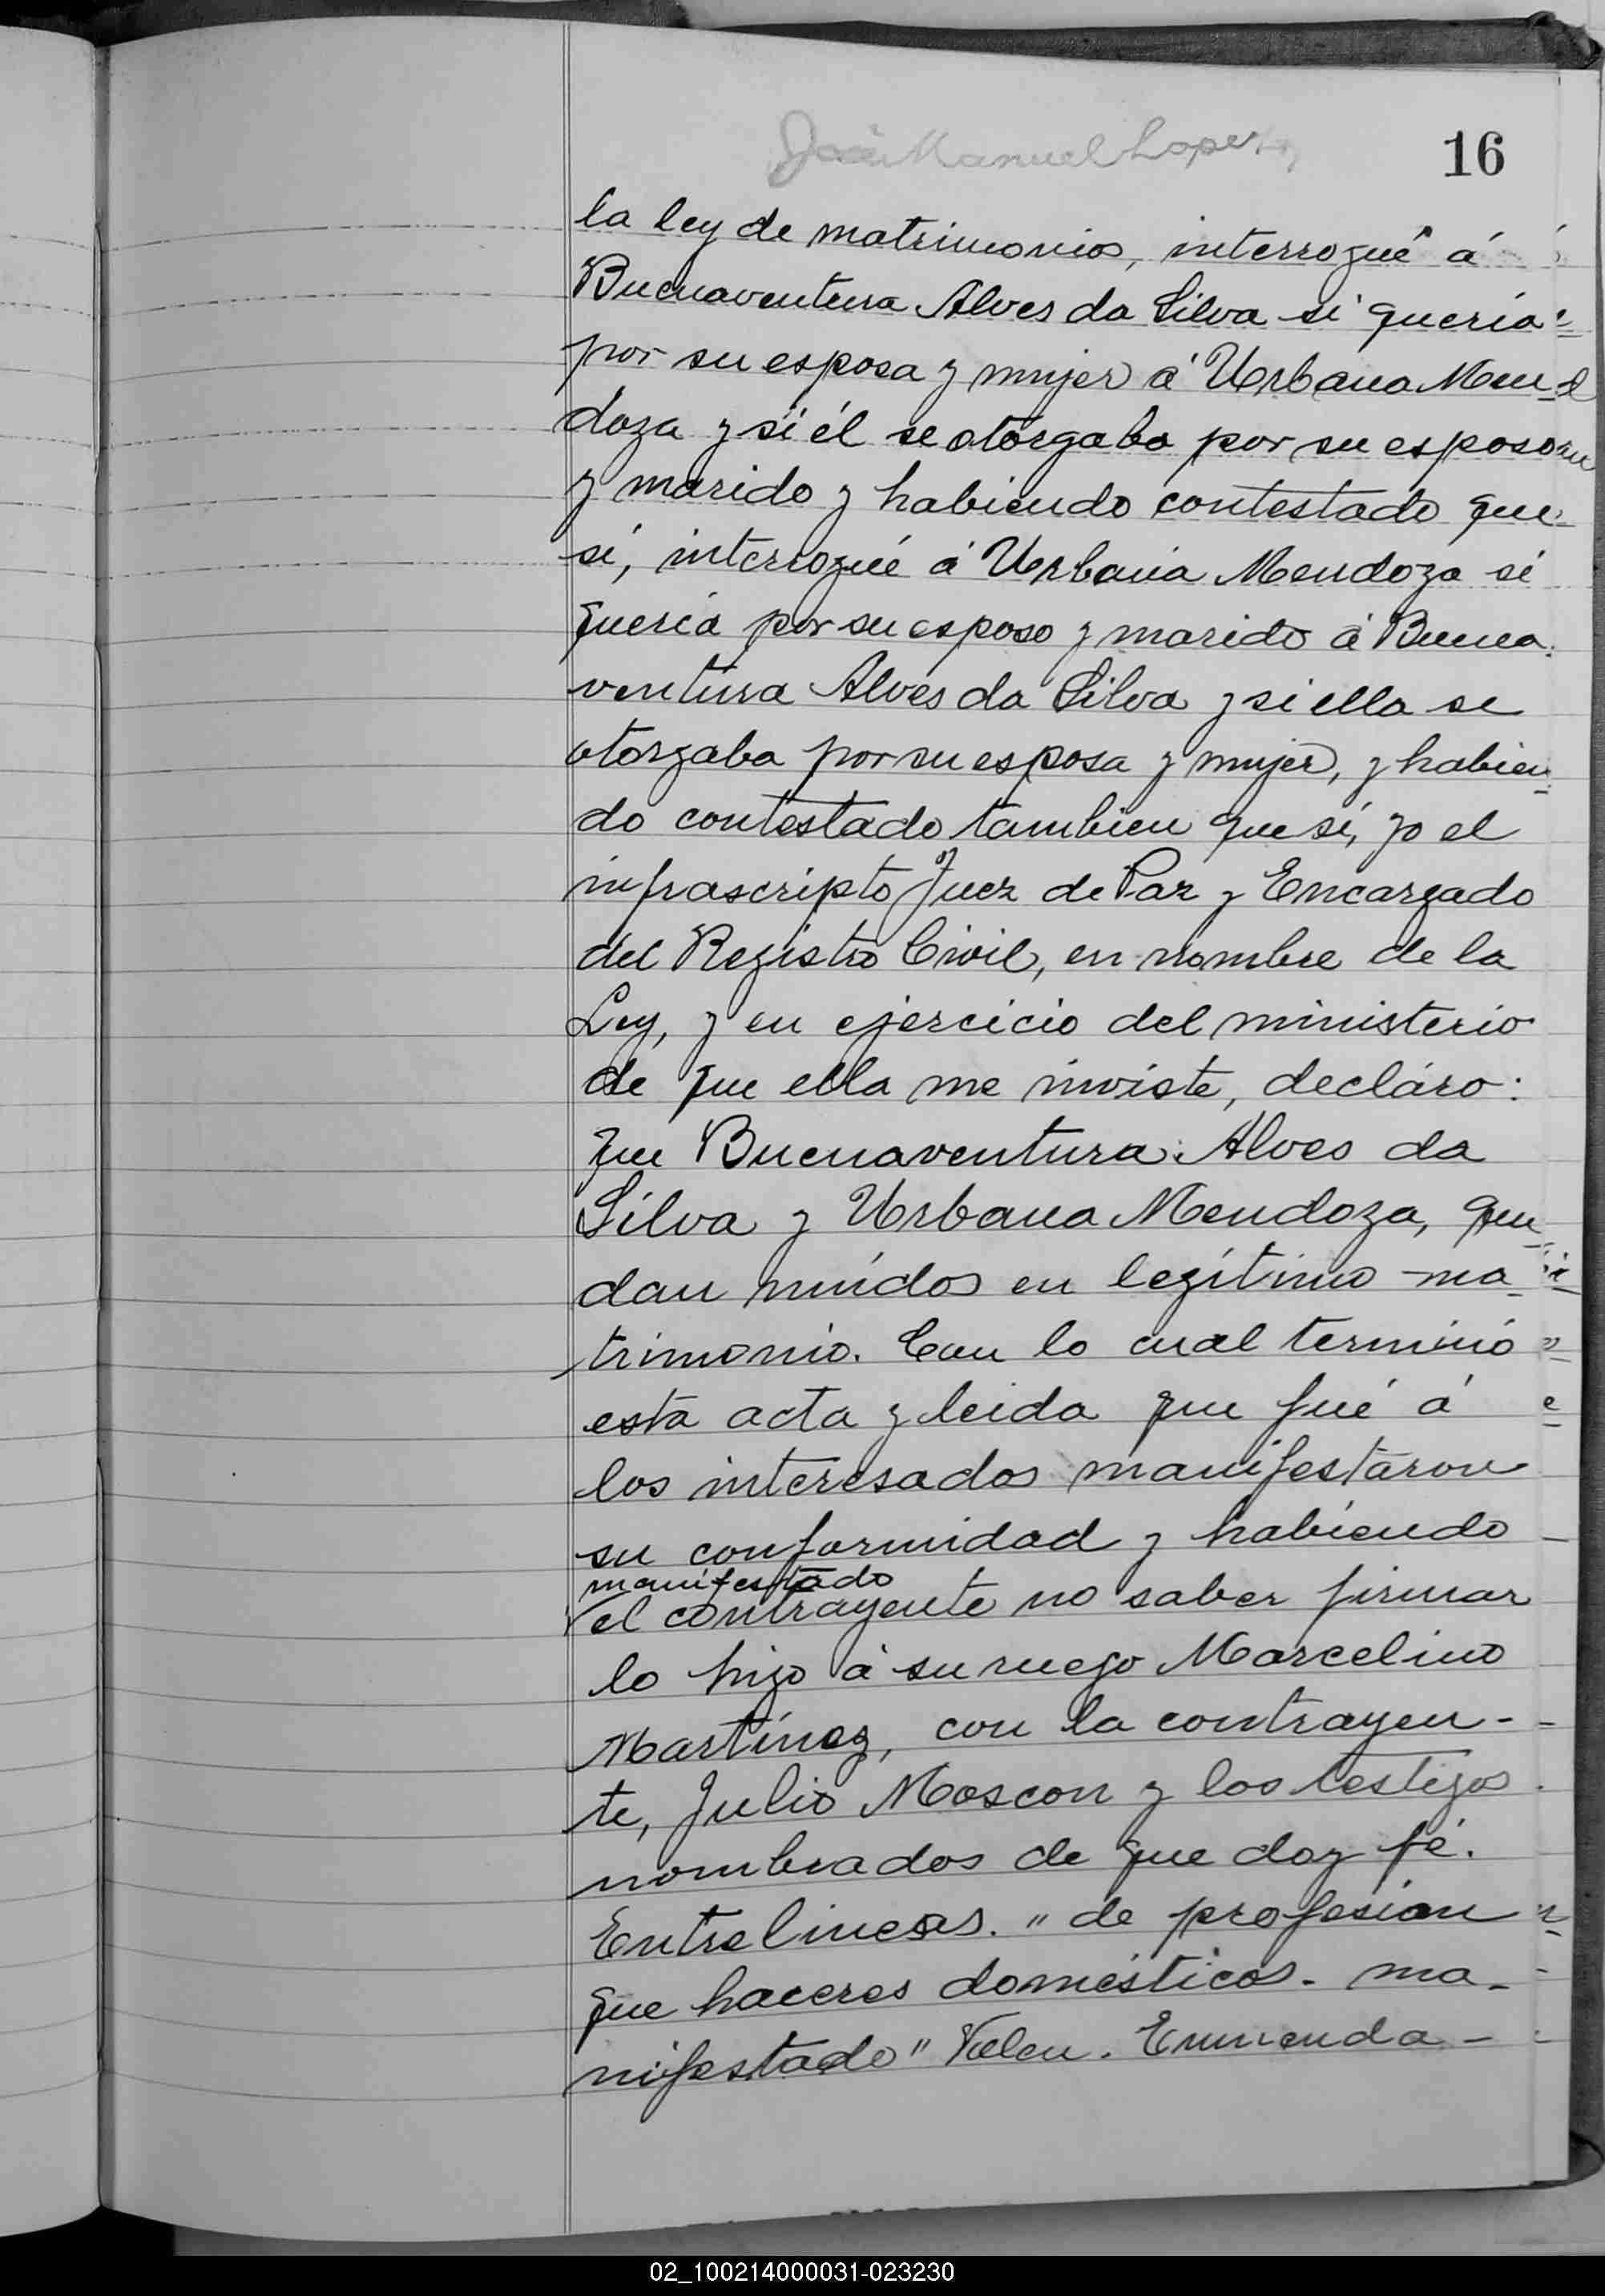 José Manuel Lopez
16
la ley de matrimonios, interrogué á
Buenaventura Alves da Silva si quería
por su esposa y mujer á Urbana Men-
doza y si él se otorgaba por su esposo
y marido y habiendo contestado que
sí, interrogué á Urbana Mendoza si
quería por su esposo y marido á Buena-
ventura Alves da Silva y si ella se
otorgaba por su esposa y mujer, y habien-
do contestado tambien que sí, yo el
infrascripto Juez de Paz y Encargado
del Registro Civil, en nombre de la
Ley, y en ejercicio del ministerio
de que ella me inviste, decláro:
que Buenaventura Alves da
Silva y Urbana Mendoza, que-
dan unídos en legítimo ma-
trimonio. Con lo cual terminó
esta acta y leida que fué á
los interesados manifestaron
su conformidad y habiendo
manifestado
el contrayente no saber firmar
lo hizo á su ruego Marcelino
Martínez, con la contrayen-
te, Julio Moscon y los testigos
nombrados de que doy fé.
Entrelineas. " de profesion
que haceres domésticos - ma-
nifestado " Valen. Enmenda-
02_100214000031-023230